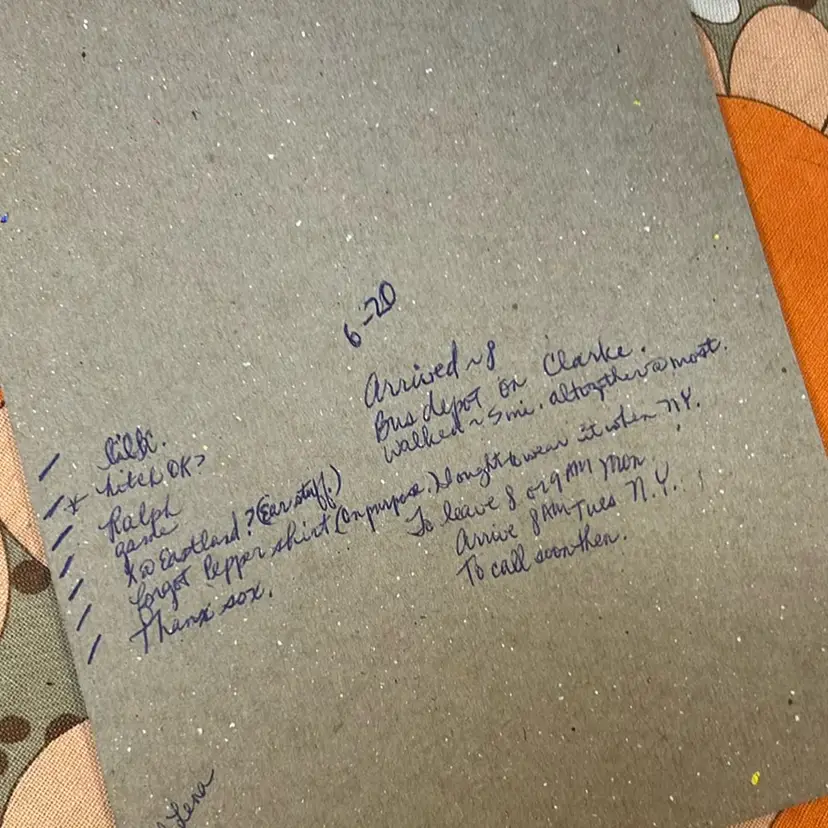 6-20
Arrived ~8
Bus depot on Clarke.
walked ~5 mi. altogether @ most.
/
* hitch OK?
/ Ralph
/
/ X @ Eastland? (Ear stuff.)
/ forgot Pepper shirt (on purpose.) ought to wear it when NY.
/ Thanx sox.
To leave 8 or 9 AM Mon.
Arrive 8 AM Tues N.Y.
To call soon then.
Lena